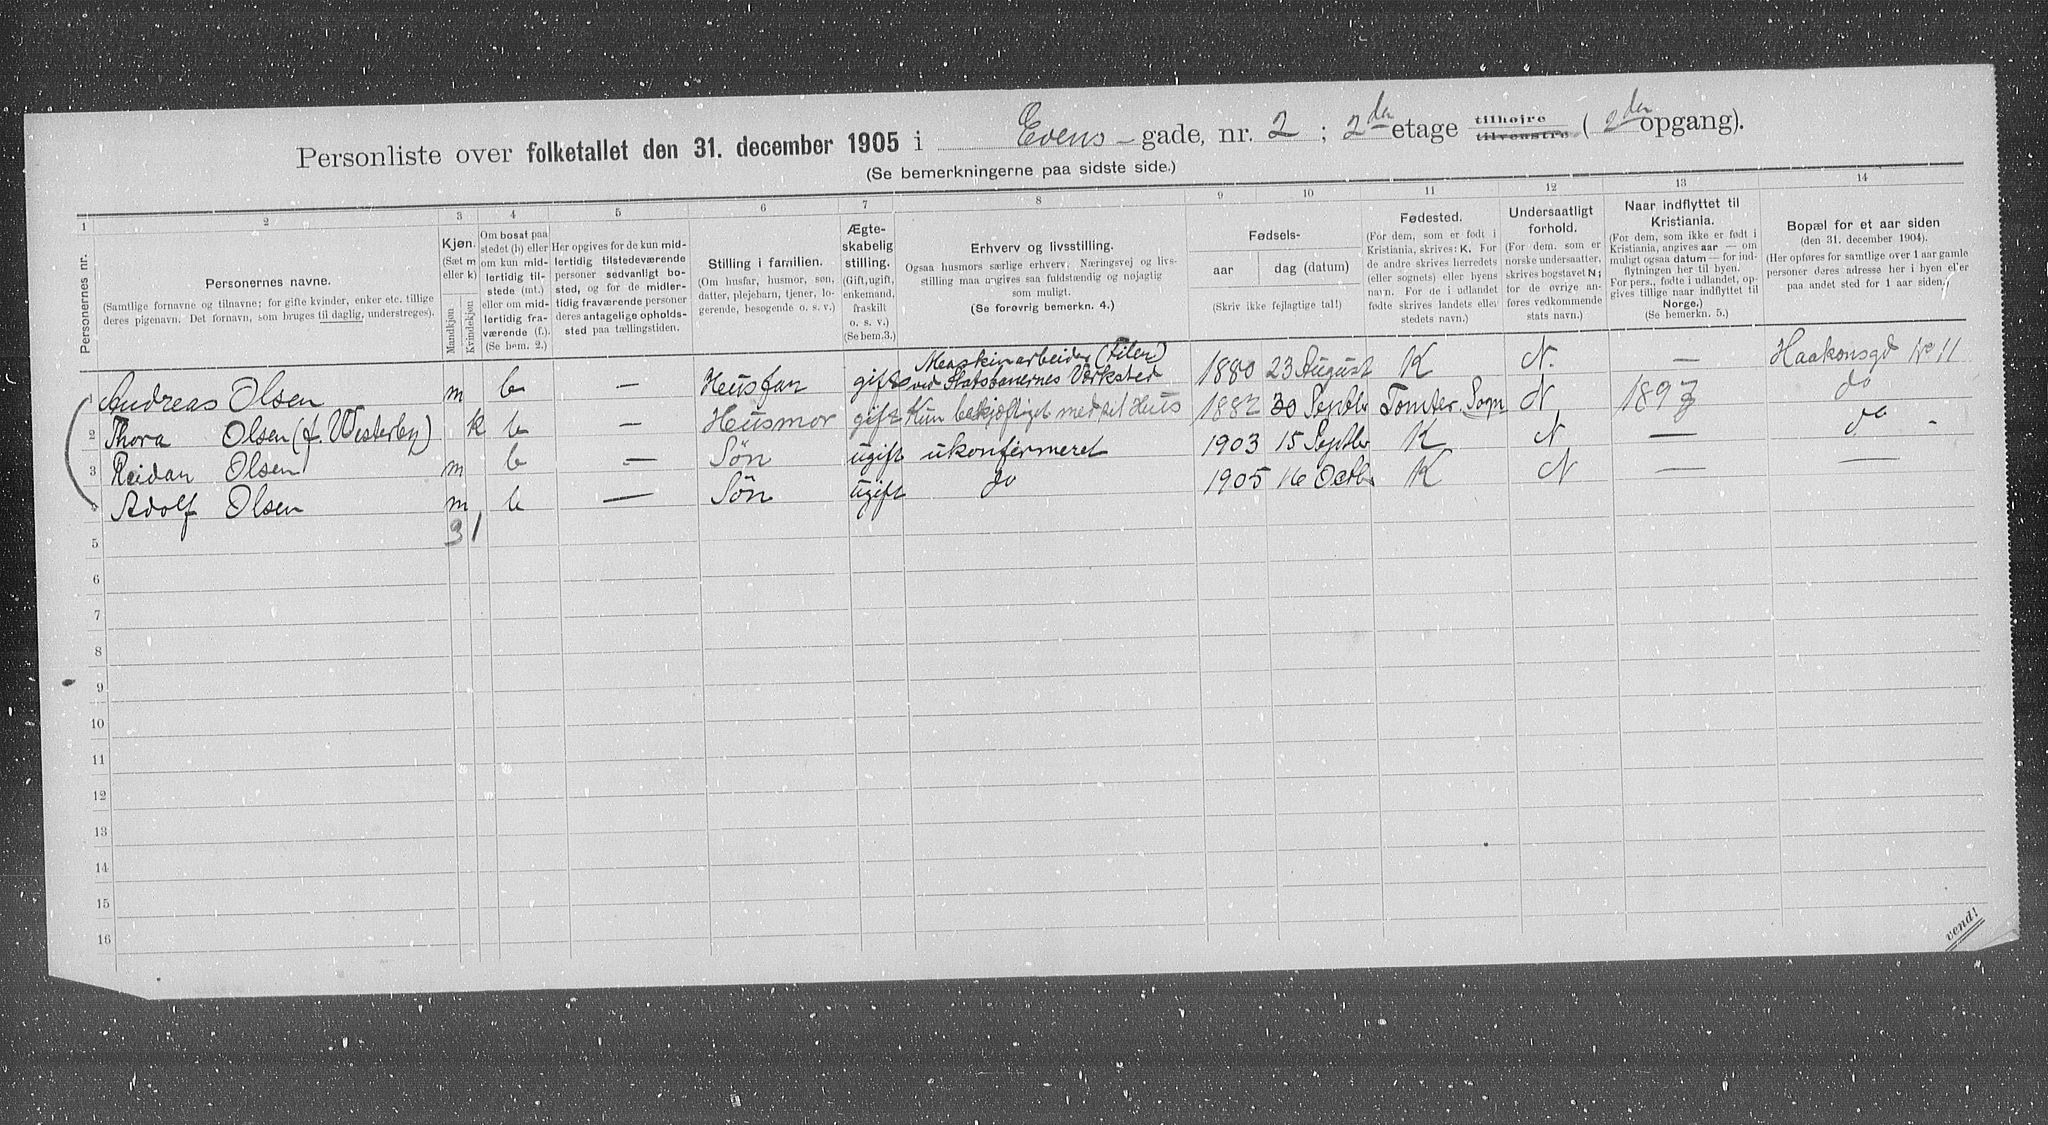 Personliste over folketallet den 31. december 1905 i Evens - gade, nr. 2 ; 2den etage tilhøjre tilvenstre ( 2den opgang).
(Se bemerkningerne paa sidste side.)
1 2 3 4 5 6 7 8 9 10 11 12 13 14
Personernes nr.
Personernes navne.
(Samtlige fornavne og tilnavne; for gifte kvinder, enker etc. tillige
deres pigenavn. Det fornavn, som bruges til daglig, understreges).
Kjøn.
(Sæt m
eller k)
Mandkjøn
Kvindekjøn
Om bosat paa
stedet (b) eller
om kun mid-
lertidig til-
stede (mt.)
eller om mid-
lertidig fra-
værende (f.).
(Se bem. 2.)
Her opgives for de kun mid-
lertidig tilstedeværende
personer sedvanligt bo-
sted, og for de midler-
tidig fraværende personer
deres antagelige opholds-
sted paa tællingstiden.
Stilling i familien.
(Om husfar, husmor, søn,
datter, plejebarn, tjener, lo-
gerende, besøgende o. s. v.)
Ægte-
skabelig
stilling.
(Gift, ugift,
enkemand,
fraskilt
o. s. v.)
(Se bem.3.)
Erhverv og livsstilling.
Ogsaa husmors særlige erhverv. Næringsvej og livs-
stilling maa angives saa fuldstændig og nøjagtig
som muligt.
(Se forøvrig bemerkn. 4.)
Fødsels-
aar dag (datum)
(Skriv ikke fejlagtige tal!)
Fødested.
(For dem, som er født i
Kristiania, skrives: K. For
de andre skrives herredets
(eller sognets) eller byens
navn. For de i udlandet
fødte skrives landets eller
stedets navn.)
Undersaatligt
forhold.
(For dem, som er
norske undersaatter,
skrives bogstavet N;
for de øvrige an-
føres vedkommende
stats navn.)
Naar indflyttet til
Kristiania.
(For dem, som ikke er født i
Kristiania, angives aar — om
muligt ogsaa datum — for ind-
flytningen her til byen.
For pers., fødte i udlandet, op-
gives tillige naar indflyttet til
Norge.)
(Se bemerkn. 5.)
Bopæl for et aar siden
(den 31. december 1904).
(Her opføres for samtlige over 1 aar gamle
personer deres adresse her i byen el'er
paa andet sted for 1 aar siden.)
Andreas Olsen m b — Husfar gift Maskinarbeider (Filer) ved Statsbanernes Værksted 1880 23 August K N. — Haakonsgd No 11
2 Thora Olsen (f. Westerby) k b — Husmor gift Kun beskjæftiget med sit Hus 1882 30 Septbr Tomter Sogn N, 1897 do
3 Reidar Olsen m b — Søn ugift ukonfirmeret 1903 15 Septbr K N — do -
4 Adolf Olsen m b — Søn ugift do 1905 16 Octbr K N — —
5 3 1
6
7
8
9
10
11
12
13
14
15
16
vend!